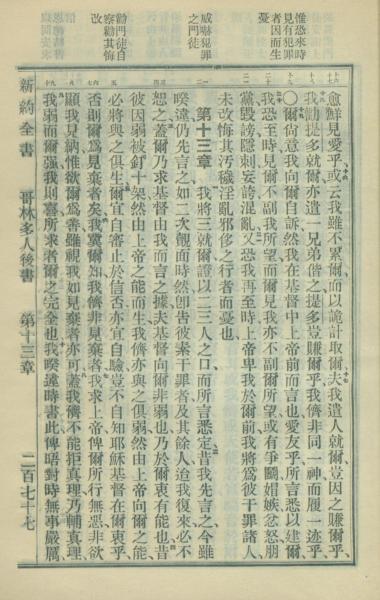 惟恐來時
見有犯罪
者因而生
憂
威嚇犯罪
之門徒
勸門徒自
察勸其悔
改
愈鮮見愛乎或云我雖不累爾而以詭計取爾夫我遣人就爾豈因之賺爾乎
我勸提多就爾亦遣一兄弟偕之提多豈賺爾乎我儕非同一神而履一迹乎
〇爾尙意我向爾自訴然我在基督中上帝前而言也愛友乎所言悉以建爾
我恐至時見爾不副我所望而爾見我亦不副爾所望或有爭鬭媢嫉忿怒朋
黨毀謗隱刺妄誇混亂又恐我再至時上帝卑我於爾前我將爲彼干罪諸人
未改悔其汚穢淫亂邪侈之行者而憂也
第十三章 我將三就爾證以二三人之口而所言悉定昔我先言之今雖
暌違仍先言之如二次覿面時然卽吿彼素干罪者及其餘人迨我復來必不
恕之蓋爾乃求基督由我而言之據夫基督向爾非弱也乃於爾衷有能也昔
彼因弱被釘十架然由上帝之能而生我儕亦與之俱弱然由上帝向爾之能
必將與之俱生爾宜自審止於信否亦宜自驗豈不自知耶穌基督在爾衷乎
否則爾爲見棄者矣我冀爾知我儕非見棄者我求上帝俾爾所行無惡非欲
顯我見納惟欲爾爲善雖視我如見棄者亦可蓋我儕不能拒眞理乃輔眞理
我弱而爾强我則喜所求者爾之完全也我暌違時書此俾晤對時無事嚴厲
新約全書 哥林多人後書 第十三章 二百七十七